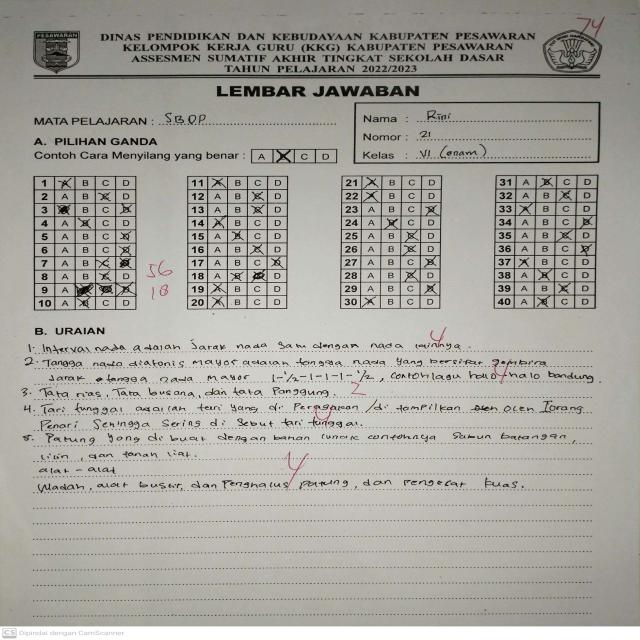 74
PESAWARAN
DINAS PENDIDIKAN DAN KEBUDAYAAN KABUPATEN PESAWARAN
KELOMPOK KERJA GURU (KKG) KABUPATEN PESAWARAN
ASSESMEN SUMATIF AKHIR TINGKAT SEKOLAH DASAR
TAHUN PELAJARAN 2022/2023
LEMBAR JAWABAN
MATA PELAJARAN : SBDP
Nama : Rini
Nomor : 21
Kelas : VI (enam)
A. PILIHAN GANDA
Contoh Cara Menyilang yang benar : A B C D
1 A B C D 11 A B C D 21 A B C D 31 A B C D
2 A B C D 12 A B C D 22 A B C D 32 A B C D
3 A B C D 13 A B C D 23 A B C D 33 A B C D
4 A B C D 14 A B C D 24 A B C D 34 A B C D
5 A B C D 15 A B C D 25 A B C D 35 A B C D
6 A B C D 16 A B C D 26 A B C D 36 A B C D
7 A B C D 17 A B C D 27 A B C D 37 A B C D
8 A B C D 18 A B C D 28 A B C D 38 A B C D
9 A B C D 19 A B C D 29 A B C D 39 A B C D
10 A B C D 20 A B C D 30 A B C D 40 A B C D
56
18
B. URAIAN
1. Interval nada adalah Jarak nada satu dengan nada lainnya. 4
2. Tangga nada diatonis mayor adalah tangga nada yang bersifat gembira
Jarak tangga nada mayor 1-1/2-1-1-1-1/2, contoh lagu halo-halo bandung. 4
3. Tata rias, Tata busana, dan tata Panggung. 2
4. Tari tunggal adalah tari yang di Peragakan /di tampilkan oleh 1orang
Penari Sehingga Sering di Sebut tari tunggal.
5. Patung yang di buat dengan bahan lunak contohnya Sabun batangan,
lilin, dan tanah liat.
alat-alat 4
Wadah, alat butsir, dan Penghalus patung, dan pengerat kuas.
CS Dipindai dengan CamScanner